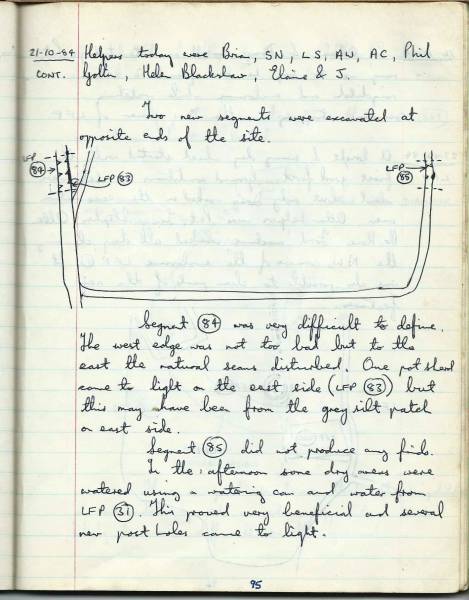 21-10-84 Helpers today were Brian, SN, LS, AW, AC, Phil
CONT. Helen Blackshaw, Elaine & J.
Two new segments were excavated at
opposite ends of the site.
LFP 84
LFP 83
LFP 85
Segment 84 was very difficult to define.
The west edge was not too bad but to the
east the natural seams disturbed. One pot sherd
came to light on the east side (LFP 83) but
this may have been from the grey silt patch
on east side.
Segment 85 did not produce any finds.
In the afternoon some dry areas were
watered using a watering can and water from
LFP 31. This proved very beneficial and several
new post holes came to light.
95